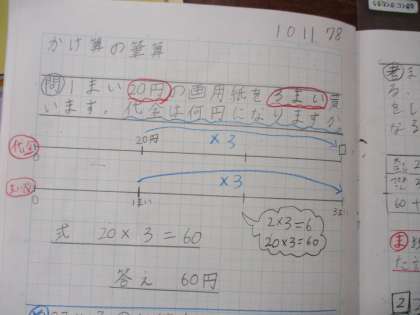 10 11 78
かけ算の筆算
問 1まい20円の画用紙を3まい買
います。代金は何円になりますか
×3
代金
0
20円
□
×3
まい数
0
1まい
3まい
2×3=6
20×3=60
式 20×3=60
答え 60円